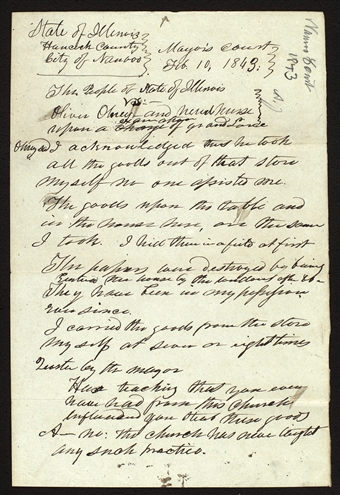 State of Illinois
Hancock County
City of Nauvoo
Mayors Court
Feb. 10, 1843.
The People of State of Illinois
vs.
Oliver Olney and
upon a charge of grand
Olney I acknowledged that he took
all the goods out of that store
myself no one assisted me.
The goods upon the table and
in the house here, are the same
I took. I hid them in a at first
The papers were destroyed by being
They have been in my possession
ever since.
I carried the goods from the store
myself at seven or eight times
by the mayor
Has teaching that you ever
have had from this church
influenced you to these goods
A— no. the church has never taught
any such practice.
1843